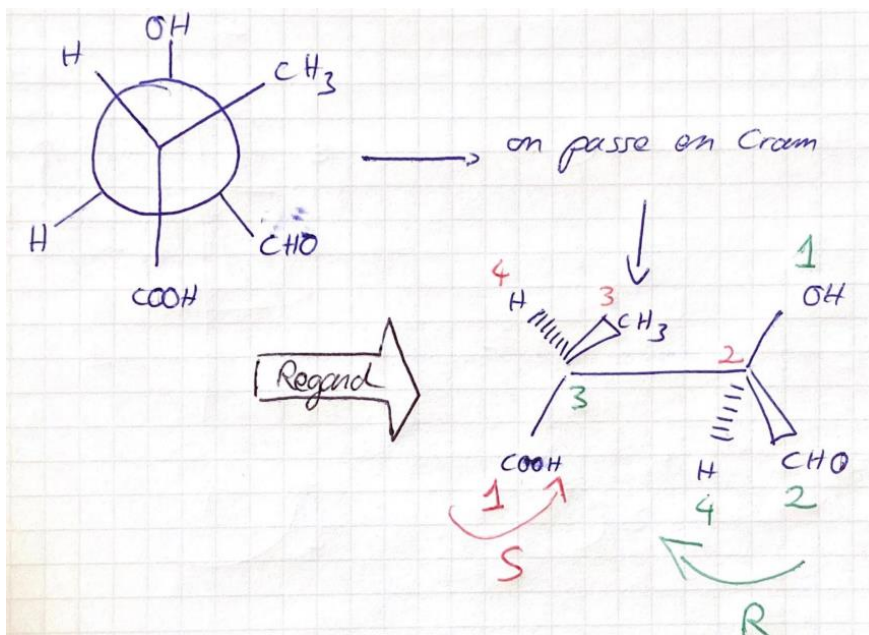 OH
H
CH3
H
CHO
COOH
on passe en Cram
Regard
4
H
3
CH3
1
OH
2
3
COOH
H
CHO
1
4
2
S
R